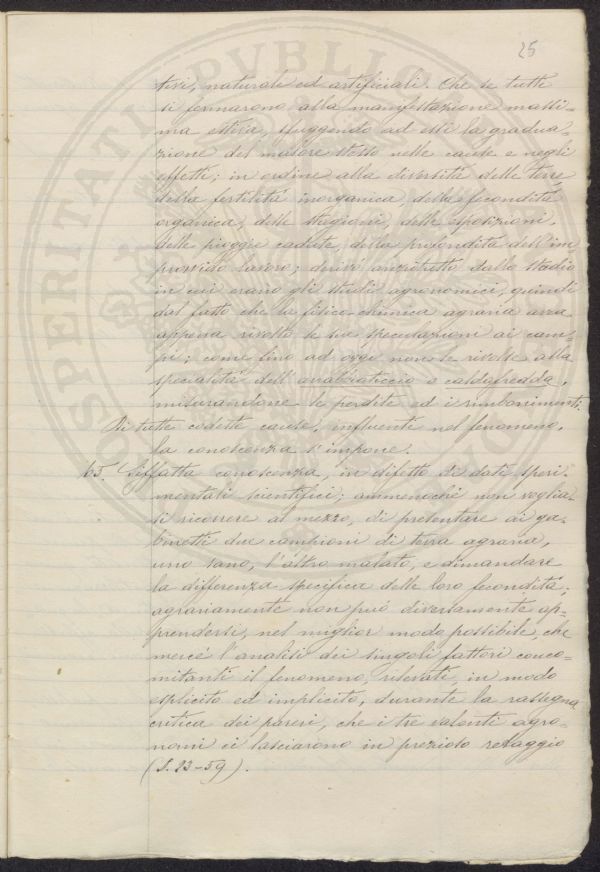 25
tivi, naturale ed artificiali. Che se tutti
si fermarono alla manifestazione massi-
ma estiva, sfuggendo ad essi la gradua-
zione del malore stesso nelle cause e negli
effetti; in ordine alla diversità delle terre
della fertilità inorganica, della fecondità
organica, delle stagioni, delle esposizioni,
delle pioggie cadute, della profondità dell'im
provvido lavoro; derivò anzitutto dallo stadio
in cui erano gli studi agronomici, quindi
dal fatto che la fisico-chimica agraria avea
appena rivolto le sue speculazioni ai cam-
pi; come fino ad oggi non le rivolse alla
specialità dell'arrabbiaticcio o caldafredda,
misurandone le perdite ed i rimborsimenti.
Di tutte codeste cause, influenti nel fenomeno,
la conoscenza s'impone.
65. Siffatta conoscenza, in difetto di dati speri-
mentali scientifici; ammenochè non voglia-
si ricorrere al mezzo, di presentare ai ga-
binetti due campioni di terra agraria,
uno sano, l'altro malato, e dimandare
la differenza specifica delle loro fecondità;
agrariamente non può diversamente ap-
prendersi, nel miglior modo possibile, che
mercè l'analisi dei singoli fattori conco-
mitanti il fenomeno, rilevati, in modo
esplicito ed implicito, durante la rassegna
critica dei pareri, che i tre valenti agro-
nomi ci lasciarono in prezioso retaggio
(§. 23-59).
PVBLICAE
PROSPERITATI